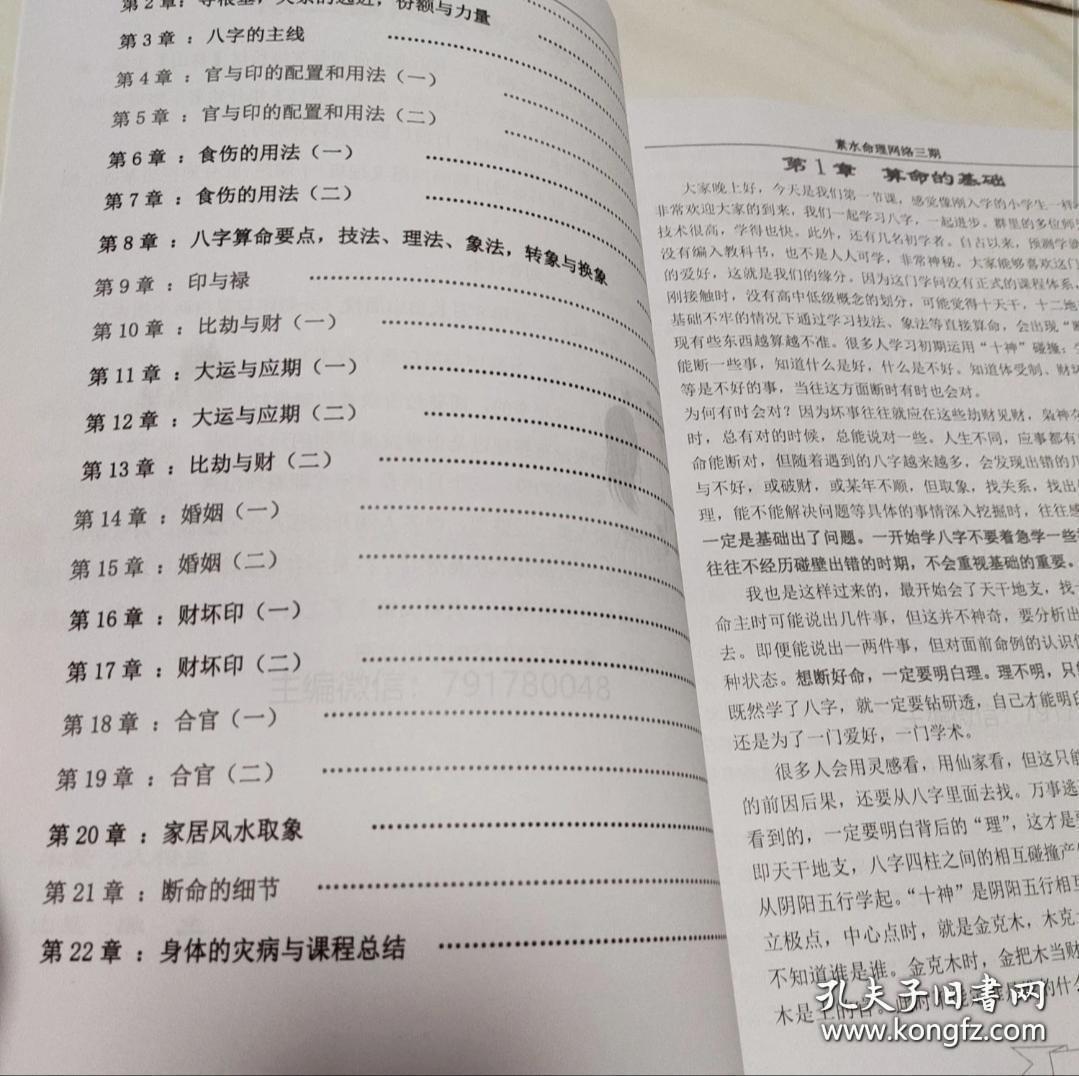 第2章：寻根基，关系的远近，份额与力量
第3章：八字的主线
第4章：官与印的配置和用法（一）
第5章：官与印的配置和用法（二）
第6章：食伤的用法（一）
第7章：食伤的用法（二）
第8章：八字算命要点，技法、理法、象法，转象与换象
第9章：印与禄
第10章：比劫与财（一）
第11章：大运与应期（一）
第12章：大运与应期（二）
第13章：比劫与财（二）
第14章：婚姻（一）
第15章：婚姻（二）
第16章：财坏印（一）
第17章：财坏印（二）
主编微信：791780048
第18章：合官（一）
第19章：合官（二）
第20章：家居风水取象
第21章：断命的细节
第22章：身体的灾病与课程总结
素水命理网络三期
第1章 算命的基础
大家晚上好，今天是我们第一节课，感觉像刚入学的小学生一样
非常欢迎大家的到来，我们一起学习八字，一起进步。群里的多位师
技术很高，学得也快。此外，还有几名初学者。自古以来，预测学
没有编入教科书，也不是人人可学，非常神秘。大家能够喜欢这门
的爱好，这就是我们的缘分。因为这门学问没有正式的课程体系，
刚接触时，没有高中低级概念的划分，可能觉得十天干，十二地
基础不牢的情况下通过学习技法、象法等直接算命，会出现“
现有些东西越算越不准。很多人学习初期运用“十神”碰撞；
能断一些事，知道什么是好，什么是不好。知道体受制、财坏
等是不好的事，当往这方面断时有时也会对。
为何有时会对？因为坏事往往就应在这些劫财见财，枭神夺
时，总有对的时候，总能说对一些。人生不同，应事都有
命能断对，但随着遇到的八字越来越多，会发现出错的几
与不好，或破财，或某年不顺，但取象，找关系，找出
理，能不能解决问题等具体的事情深入挖掘时，往往感
一定是基础出了问题。一开始学八字不要着急学一些
往往不经历碰壁出错的时期，不会重视基础的重要。
我也是这样过来的，最开始会了天干地支，找一
命主时可能说出几件事，但这并不神奇，要分析出
去。即便能说出一两件事，但对面前命例的认识
种状态。想断好命，一定要明白理。理不明，只
既然学了八字，就一定要钻研透，自己才能明白
还是为了一门爱好，一门学术。
很多人会用灵感看，用仙家看，但这只能
的前因后果，还要从八字里面去找。万事逃
看到的，一定要明白背后的“理”，这才是
即天干地支，八字四柱之间的相互碰撞产
从阴阳五行学起。“十神”是阴阳五行相互
立极点，中心点时，就是金克木，木克
不知道谁是谁。金克木时，金把木当财
木是土的官。此时
孔夫子旧书网
www.kongfz.com